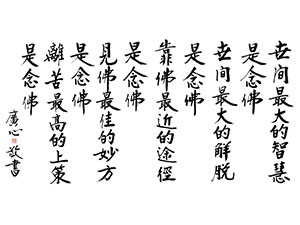 世间最大的智慧
是念佛
世间最大的解脱
是念佛
靠佛最近的途径
是念佛
見佛最佳的妙方
是念佛
離苦最高的上策
是念佛
廣心敬書